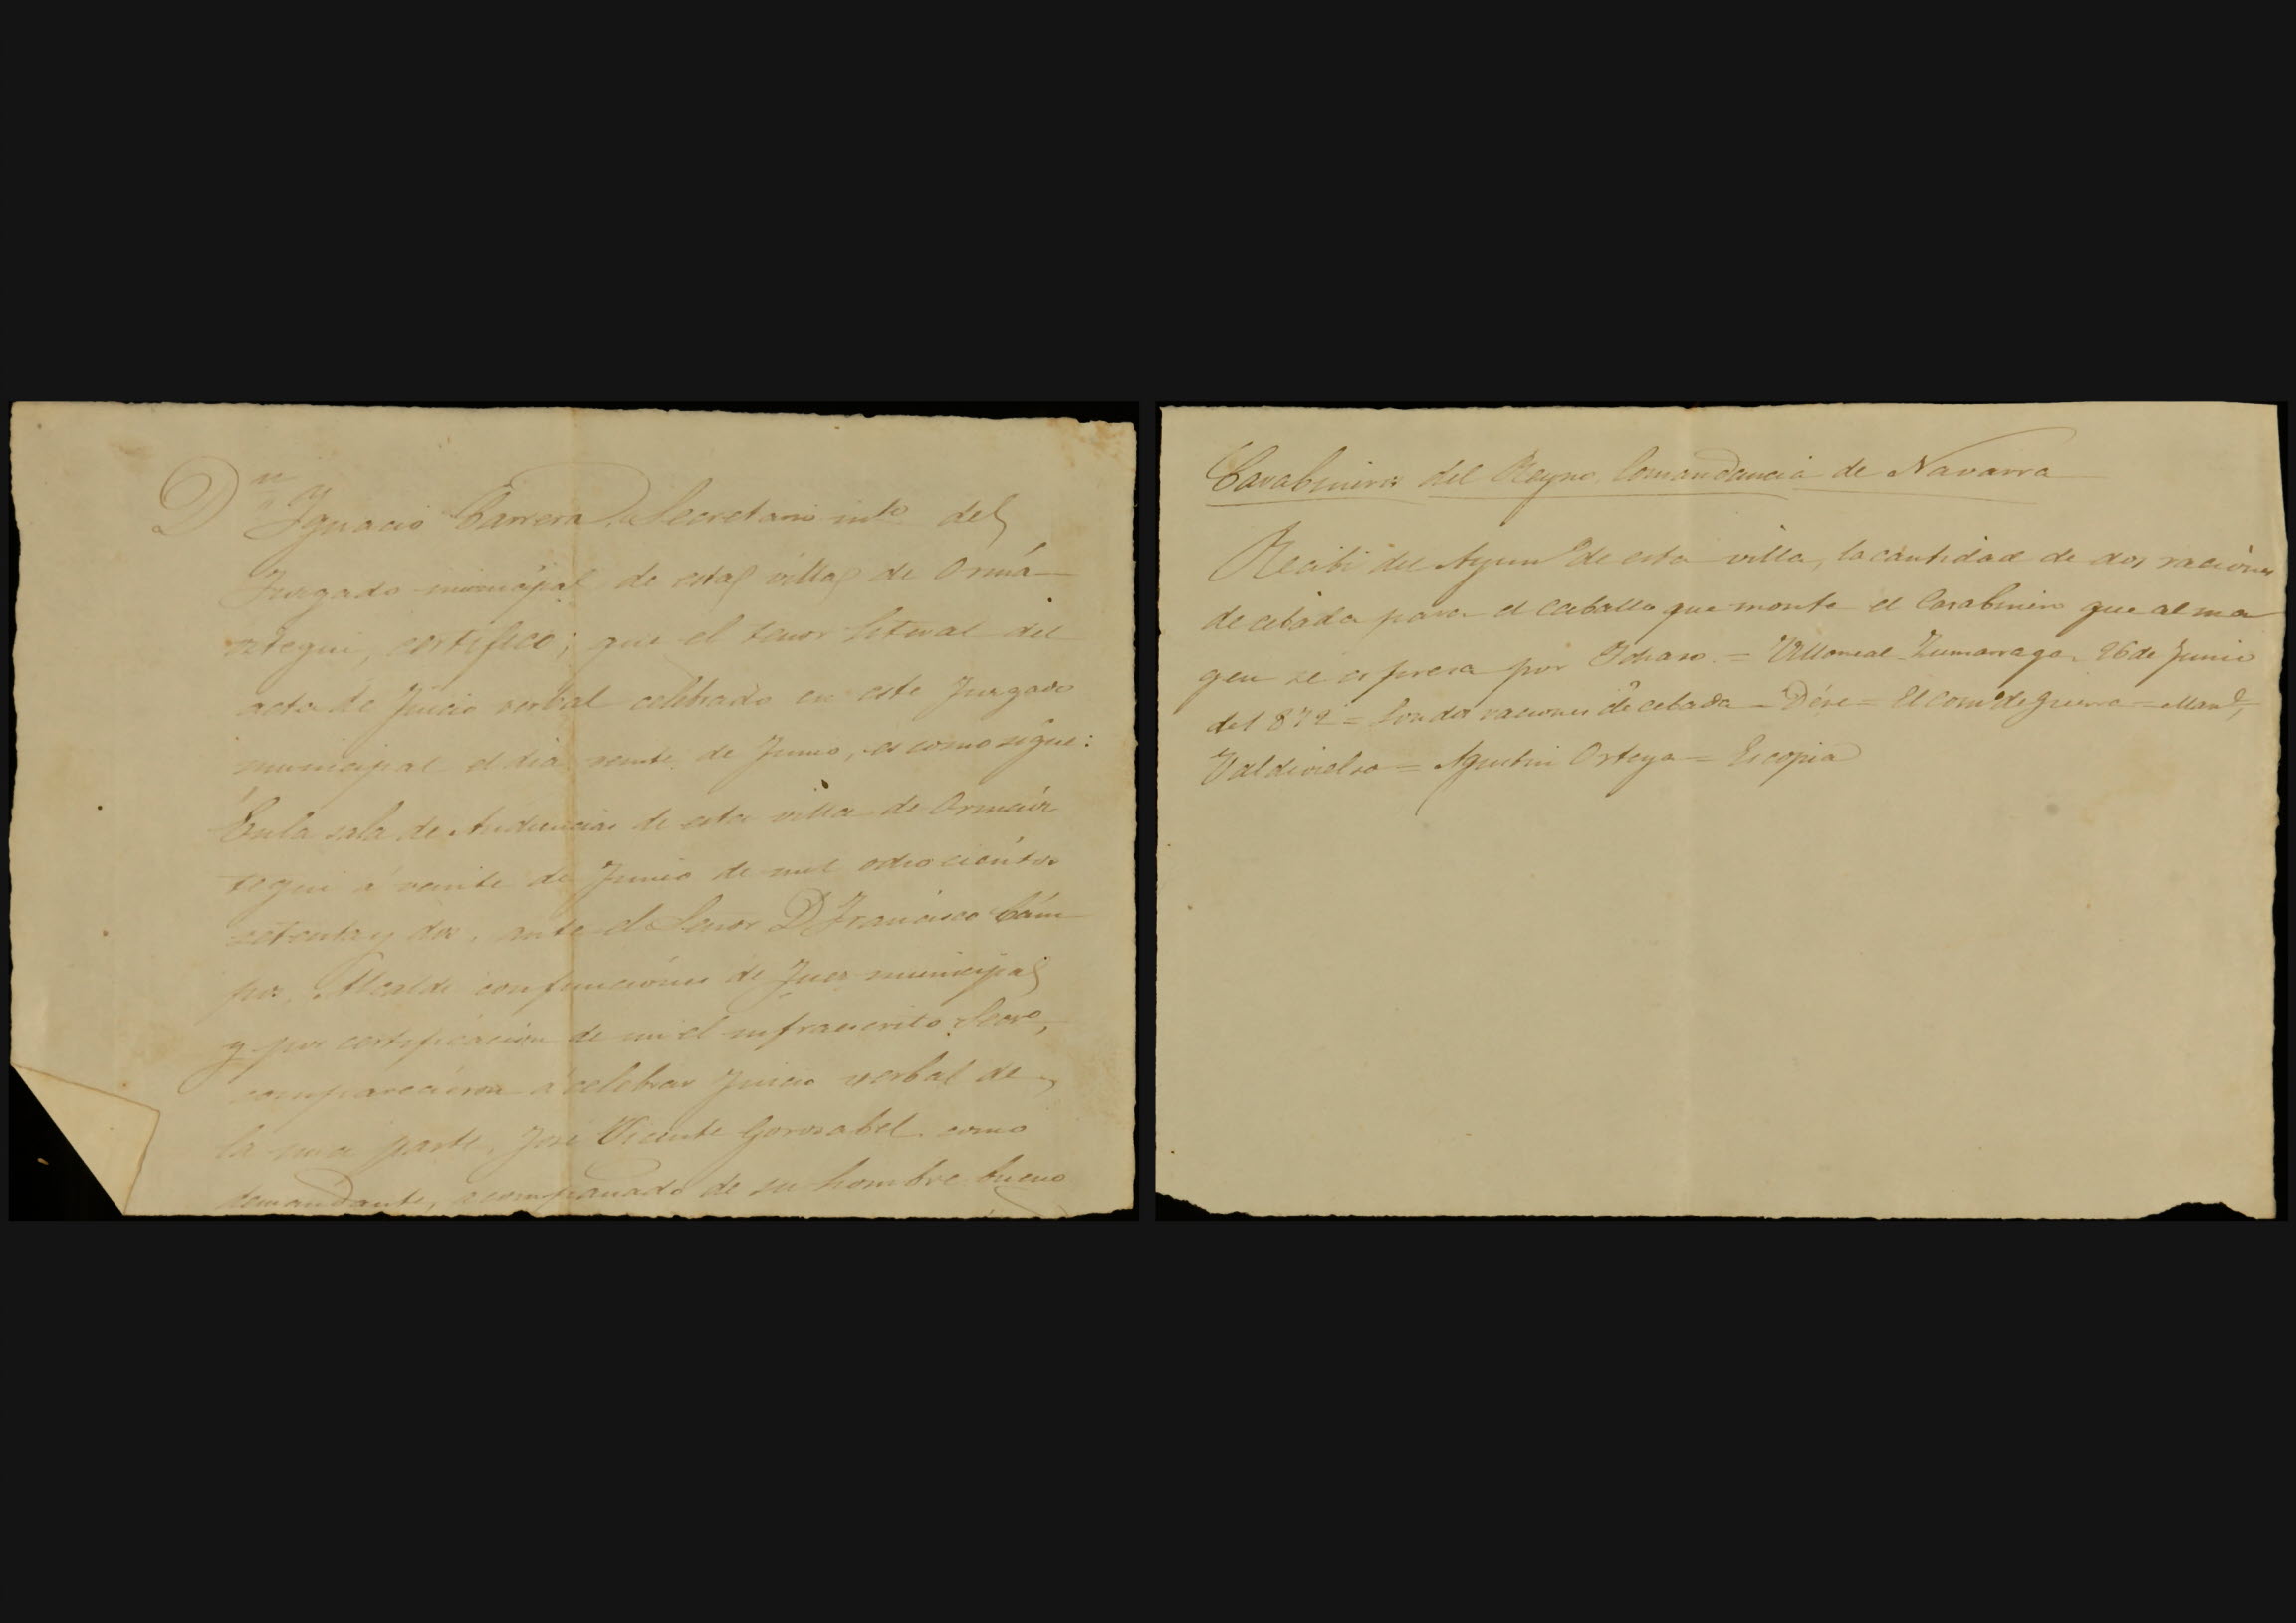 Dn Ignacio Carrera, Secretario into del
Juzgado municipal de esta villa de Ormá-
iztegui, certifico; que el tenor literal del
acta de Juicio verbal celebrado en este Juzgado
municipal el dia veinte de Junio, es como sigue:
En la sala de Audiencias de esta villa de Ormáiz
tegui á veinte de Junio de mil ochocientos
setenta y dos, ante el Señor D Francisco Cám
pos, Alcalde con funciónes de Juez municipal
y por certificación de mi el infrascrito Secro,
comparecieron á celebrar Juicio verbal de
la una parte, José Vicente Gorosabel como
demandante, acompañado de su hombre bueno
Carabineros del Reyno Comandancia de Navarra
Recibi del Ayunto de esta villa, la cantidad de dos raciónes
de cebada para el caballo que monta el Carabinero que al mar
gen se espresa por Ichaso. = Villareal-Zumarraga. 26 de Junio
del 872 = Son dos raciones de cebada - Dése = El Como de Guerra = Manl,
Valdivielso = Agustin Ortega = Es copia